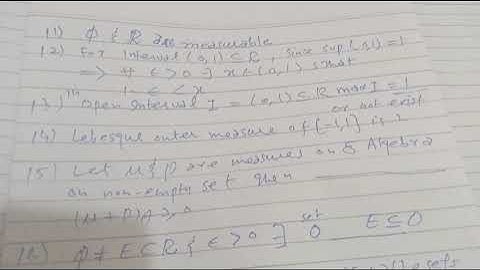 11) φ & R are measurable
12) For Interval (0,1) ⊆ R, since sup.(0,1) = 1
⇒ ∀ ε > 0 ∃ x ∈ (0,1) s that
1 - ε < x
13) In open interval I = (0,1) ⊆ R max I = 1
or not exist
14) Lebesgue outer measure of [-1,1] is 2
15) Let μ & ν are measures on Algebra
on non-empty set then
(μ + ν) A ≥ 0
φ ≠ E ⊆ R & ε > 0 ∃ set O E ⊆ O